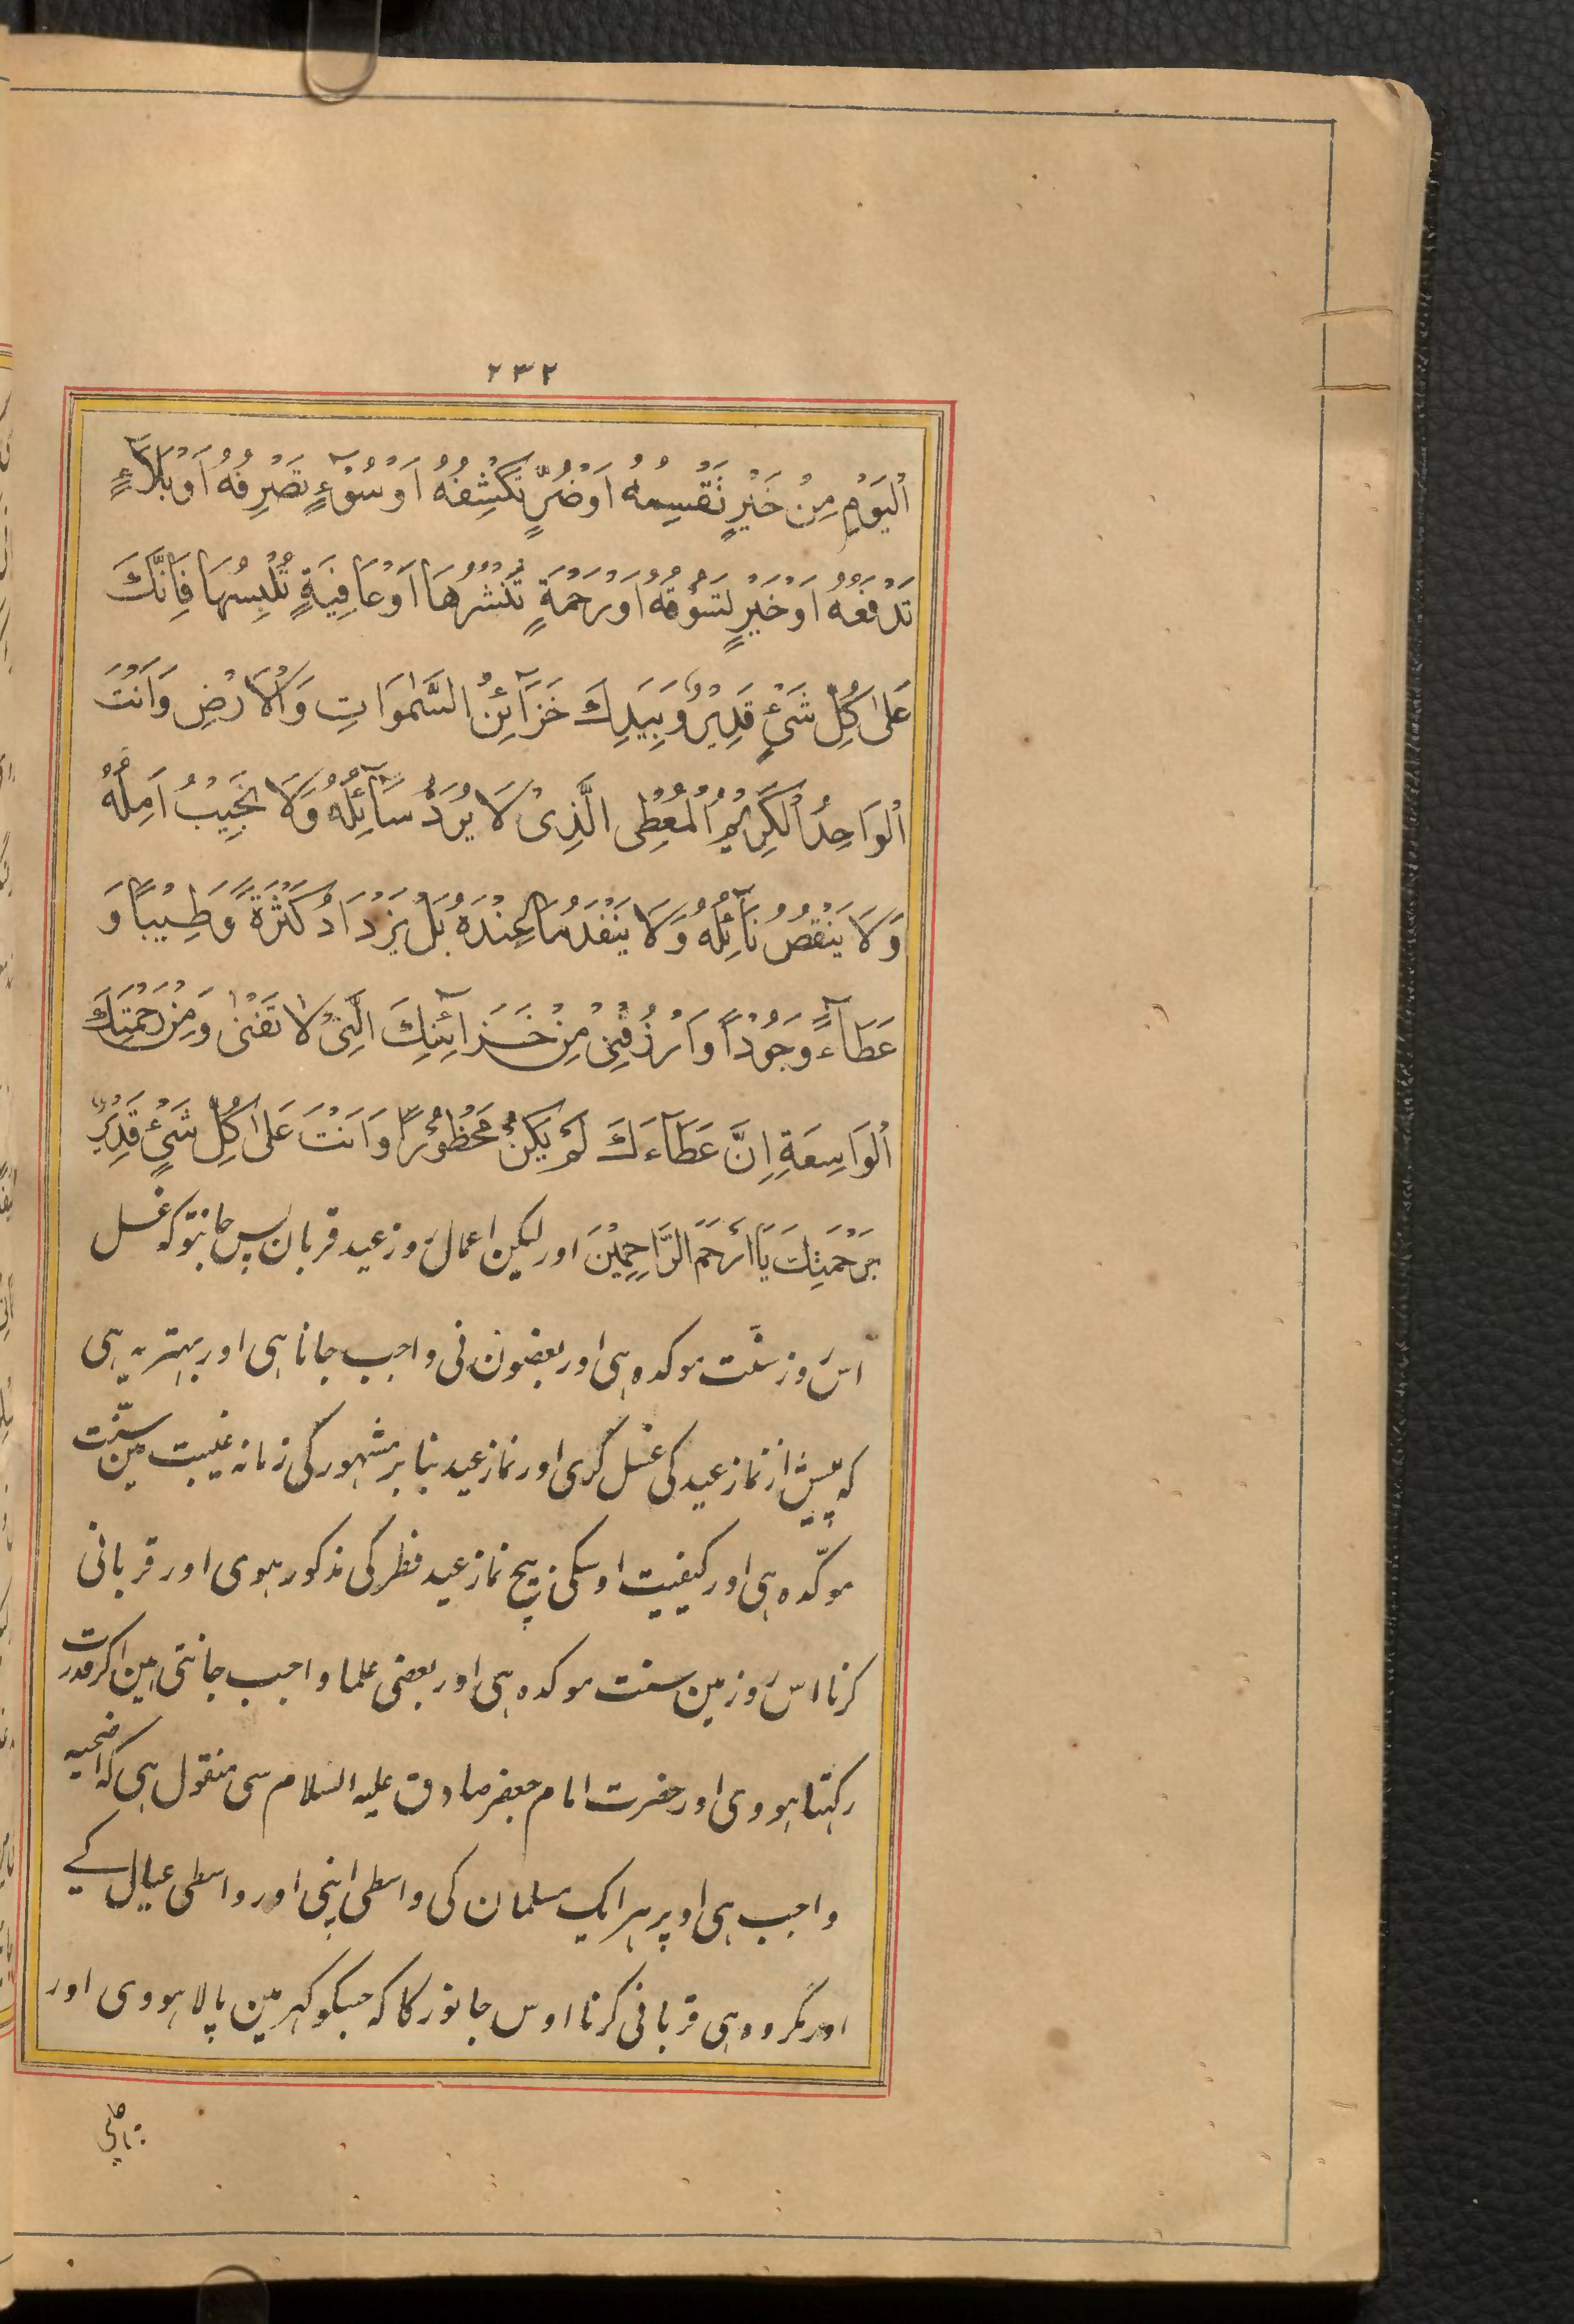 ۲۳۲
اَلْيَوْمِ مِنْ خَيْرٍ تَقْسِمُهُ اَوْضُرٍّ تَكْشِفُهُ اَوْ سُوْٓءٍ تَصْرِفُهُ اَوْبَلَآءٍ
تَدْفَعُهُ اَوْخَيْرٍ تَسُوْقُهُ اَوْرَحْمَةٍ تَنْشُرُهَا اَوْعَافِيَةٍ تُلْبِسُهَا فَاِنَّكَ
عَلٰى كُلِّ شَيْءٍ قَدِيْرٌ وَبِيَدِكَ خَزَآئِنُ السَّمٰوَاتِ وَالْاَرْضِ وَاَنْتَ
الْوَاحِدُ الْكَرِيْمُ الْمُعْطِى الَّذِىْ لَا يُرَدُّ سَآئِلُهُ وَلَا يَخِيْبُ اٰمِلُهُ
وَلَا يَنْقُصُ نَآئِلُهُ وَلَا يَنْفَدُ مَا عِنْدَهُ بَلْ يَزْدَادُ كَثْرَةً وَطِيْبًا وَ
عَطَآءً وَجُوْدًا وَارْزُقْنِىْ مِنْ خَزَآئِنِكَ الَّتِىْ لَا تَفْنٰى وَمِنْ رَحْمَتِكَ
الْوَاسِعَةِ اِنَّ عَطَآءَكَ لَمْ يَكُنْ مَحْظُوْرًا وَاَنْتَ عَلٰى كُلِّ شَيْءٍ قَدِيْرٌ
بِرَحْمَتِكَ يَا اَرْحَمَ الرَّاحِمِيْنَ اور لیکن اعمال روز عید قربان پس جانتو کہ غسل
اس روز سنّت موکدہ ہی اور بعضون نی واجب جانا ہی اور بہتر یہ ہی
کہ پیش از نماز عید کی غسل کری اور نماز عید بنا بر مشہور کی زمانہ غیبت مین سنّت
موکّدہ ہی اور کیفیت اوسکی بیچ نماز عید فطر کی مذکور ہوی اور قربانی
کرنا اس روز مین سنت موکدہ ہی اور بعضی علما واجب جانتی ہین اکر قدرت
رکہتا ہووی اور حضرت امام جعفر صادق علیہ السلام سی منقول ہی کہ اضحیہ
واجب ہی اوپر ہر ایک مسلمان کی واسطی اپنی اور واسطی عیال کے
اور مکروہ ہی قربانی کرنا اوس جانور کا کہ جسکو کہر مین پالا ہووی اور